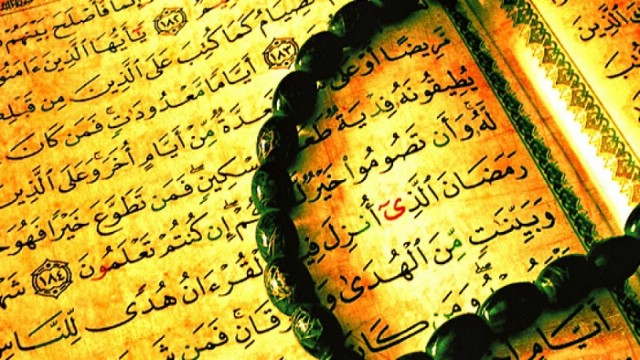 فَأَصْلَحَ بَيْنَهُمْ
۝١٨٢ يَٰٓأَيُّهَا الَّذِينَ ءَامَنُوا
الصِّيَامُ كَمَا كُتِبَ عَلَى الَّذِينَ مِن قَبْلِ
۝١٨٣ أَيَّامًا مَّعْدُودَٰتٍ فَمَن كَانَ
مَّرِيضًا أَوْ عَلَىٰ فَعِدَّةٌ مِّنْ أَيَّامٍ أُخَرَ وَعَلَى الَّذِينَ
يُطِيقُونَهُۥ فِدْيَةٌ طَعَامُ مِسْكِينٍ فَمَن تَطَوَّعَ خَيْرًا فَهُوَ
لَّهُۥ وَأَن تَصُومُوا خَيْرٌ لَّكُمْ إِن كُنتُمْ تَعْلَمُونَ ۝١٨٤ شَهْرُ
رَمَضَانَ الَّذِىٓ أُنزِلَ فِيهِ الْقُرْءَانُ هُدًى لِّلنَّاسِ
وَبَيِّنَٰتٍ مِّنَ الْهُدَىٰ وَالْفُرْقَانِ فَمَن
وَمَن كَانَ
أَيَّامٍ